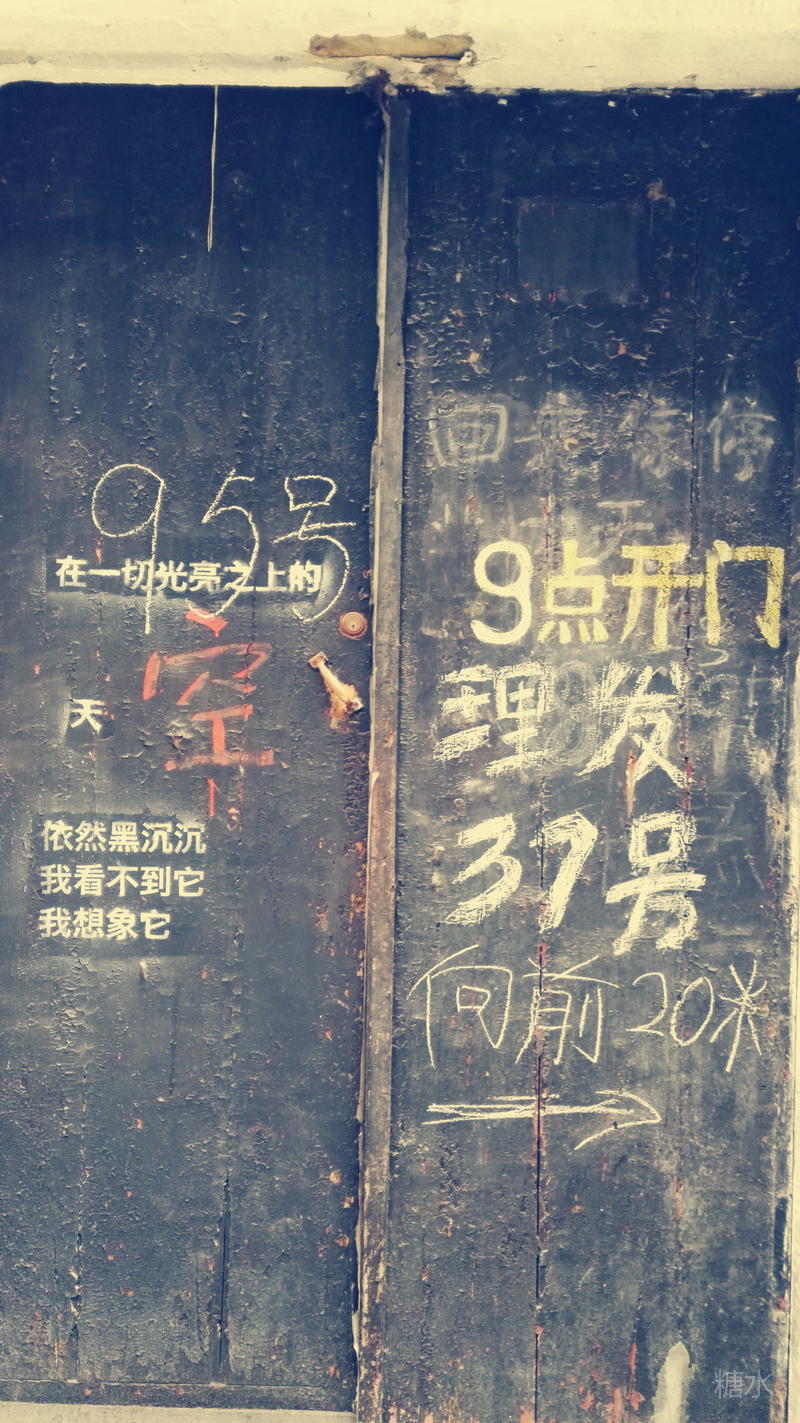 95号
在一切光亮之上的
天空
依然黑沉沉
我看不到它
我想象它
停
9点开门
理发
37号
向前20米
糖水